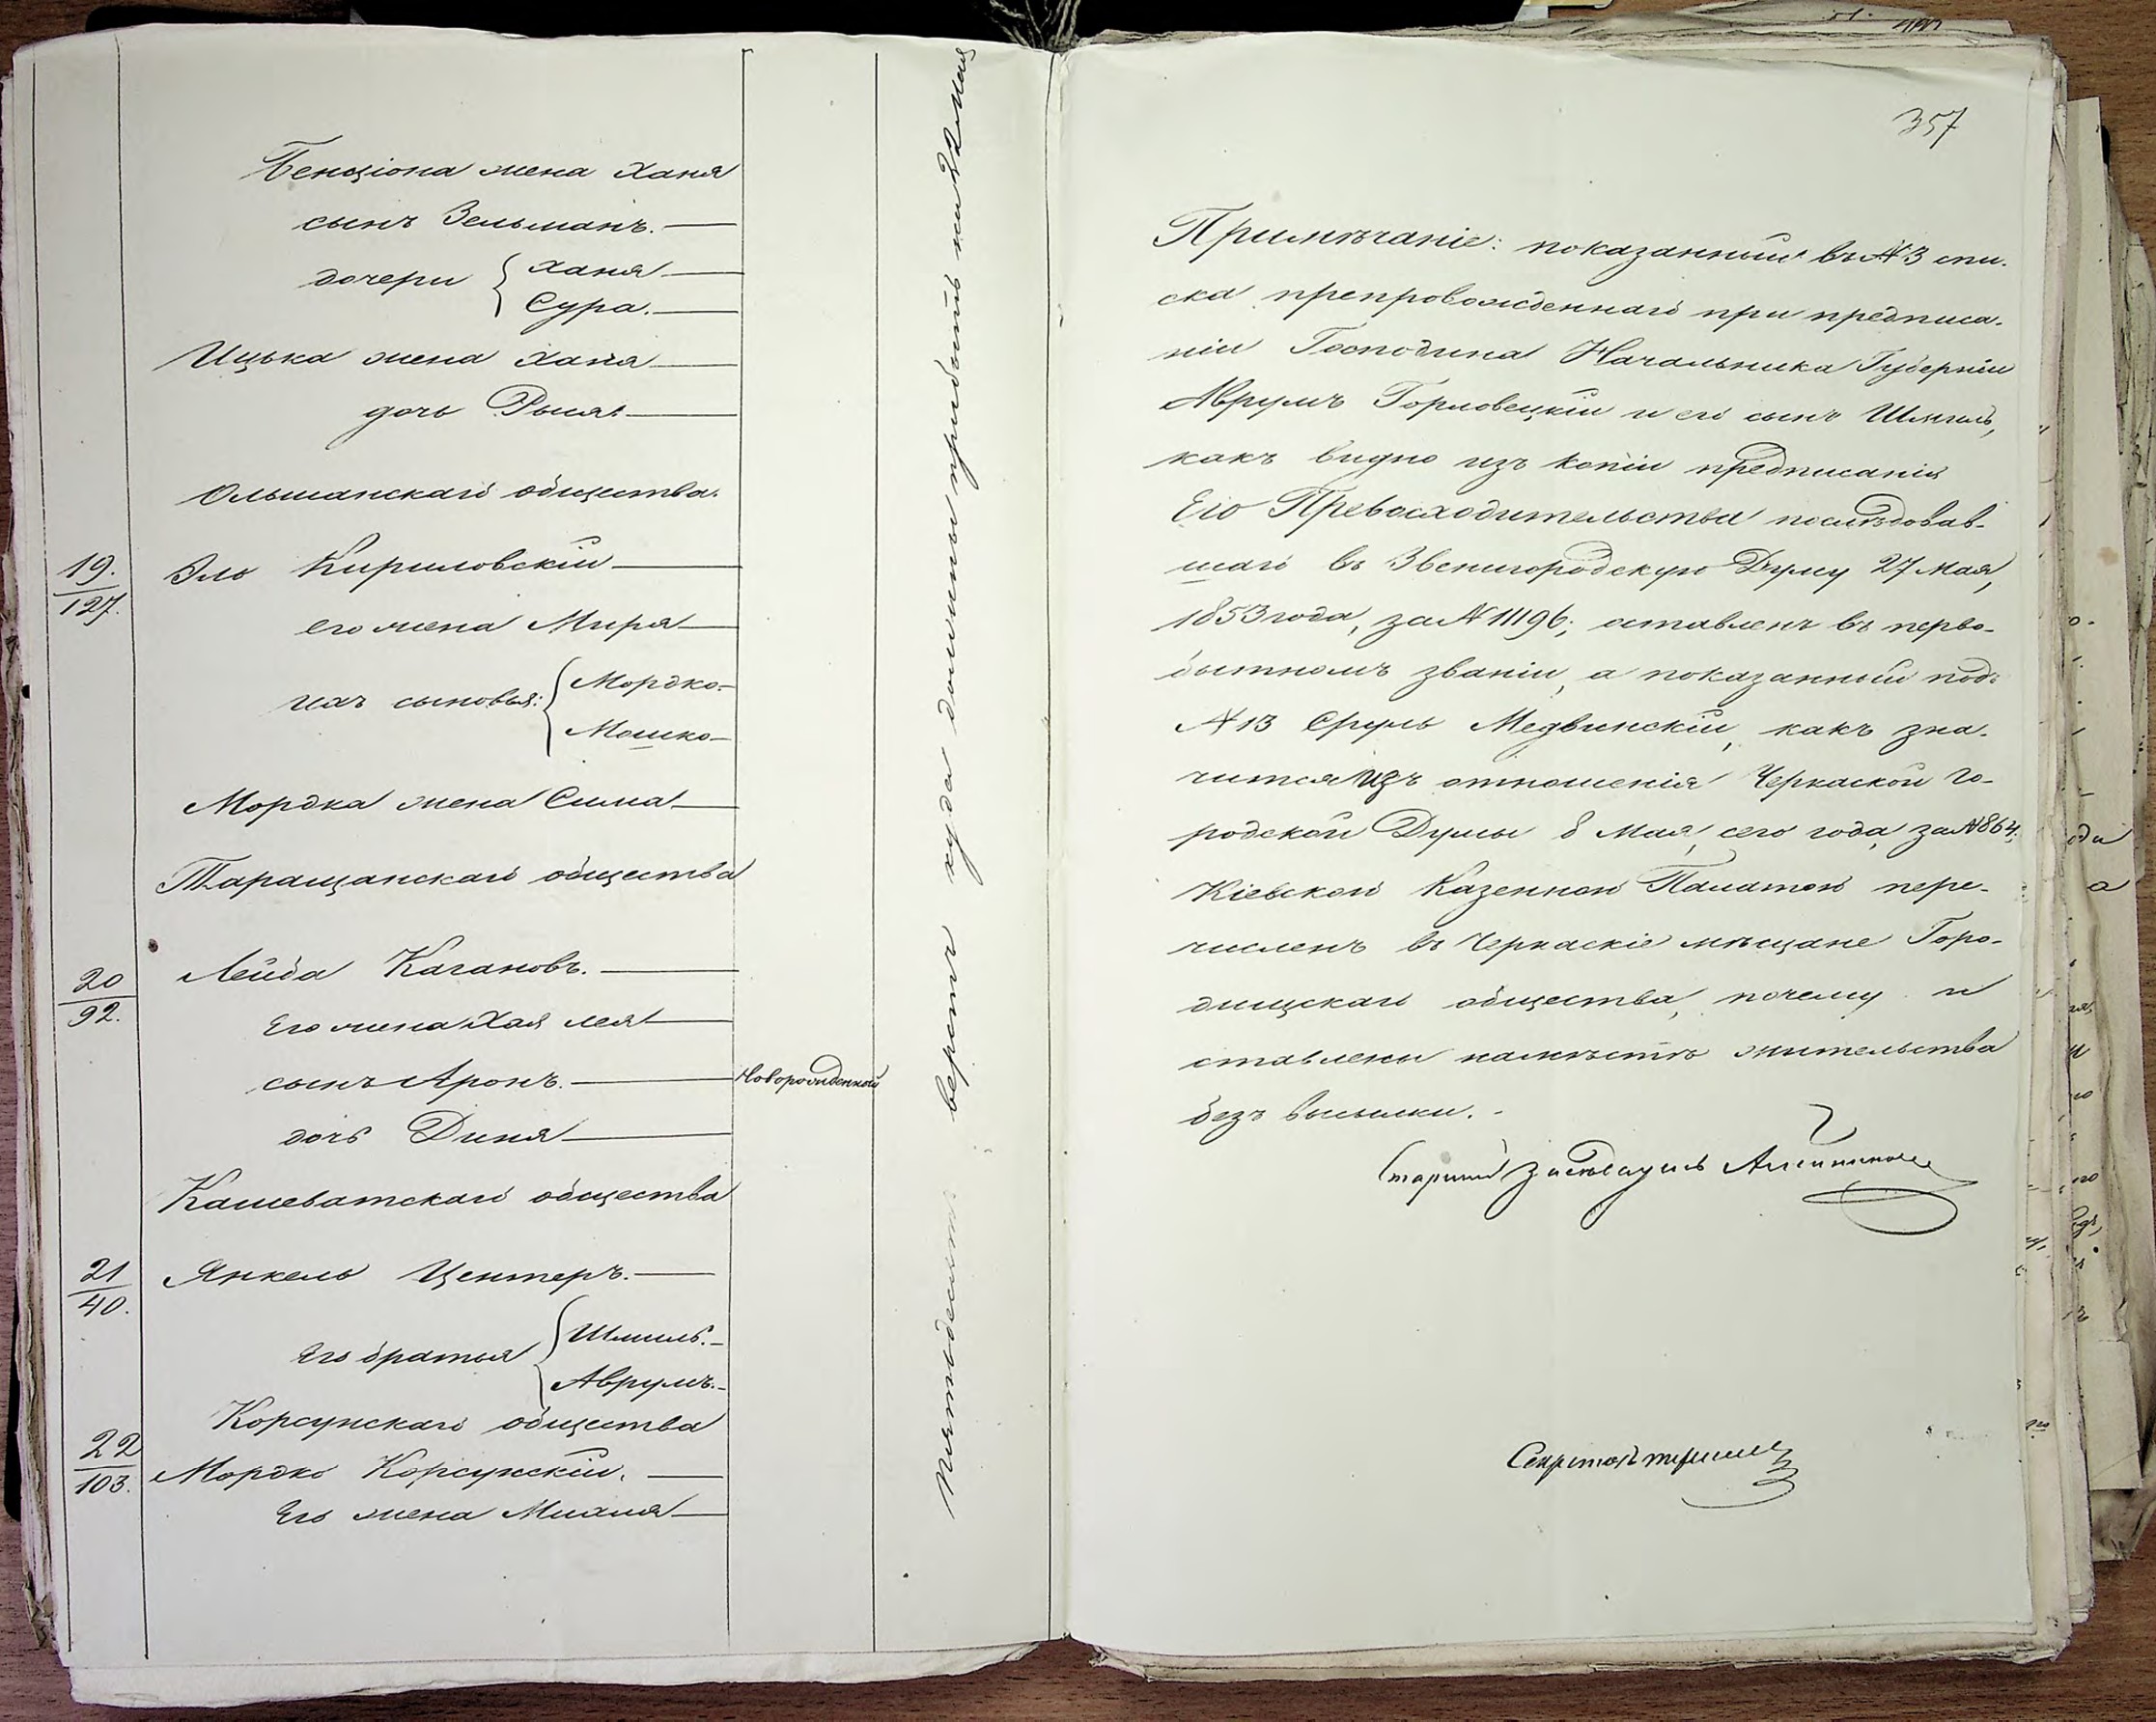 Бенціона жена Ханя
сынъ Зельманъ.
дочери { Ханя
Сура.
Ицька жена Хана
дочь Рыся.
Ольшанскаго общества.
19.
127.
Эло Кириловскій
его жена Миря
ихъ сыновья: { Мордко
Мошко
Мордка жена Сима
Таращанскаго общества
20
92.
Лейба Кагановъ.
Его жена Хая Лея
сынъ Аронъ. Новорожденной
дочь Диня
Кашеватскаго общества
21
40.
Янкель Центеръ.
Его братья { Шмиль.
Аврумъ.
Корсунскаго общества
22
103.
Мордко Корсунскій.
Его жена Михля
Пятьдесятъ верстъ куда должны прибыть на 22 мая
357
Примѣчаніе: показанный въ № 3 спи-
ска препровожденнаго при предписа-
ніи Господина Начальника Губерніи
Аврумъ Горловецкій и его сынъ Шмиль,
какъ видно изъ копіи предписанія
Его Превосходительства послѣдовав-
шаго въ Звенигородскую Думу 27 Мая,
1853 года, за № 11196; оставленъ въ перво-
бытномъ званіи, а показанный подъ
№ 13 Сруль Медвинскій, какъ зна-
чится изъ отношенія Черкаской Го-
родской Думы 8 Мая, сего года, за № 864,
Кіевской Казенной Палатой пере-
численъ въ Черкаскіе мѣщане Горо-
дищскаго общества, почему и
ставлены на мѣстѣ жительства
безъ высылки.
Старшій Засѣдатель
Секретарь